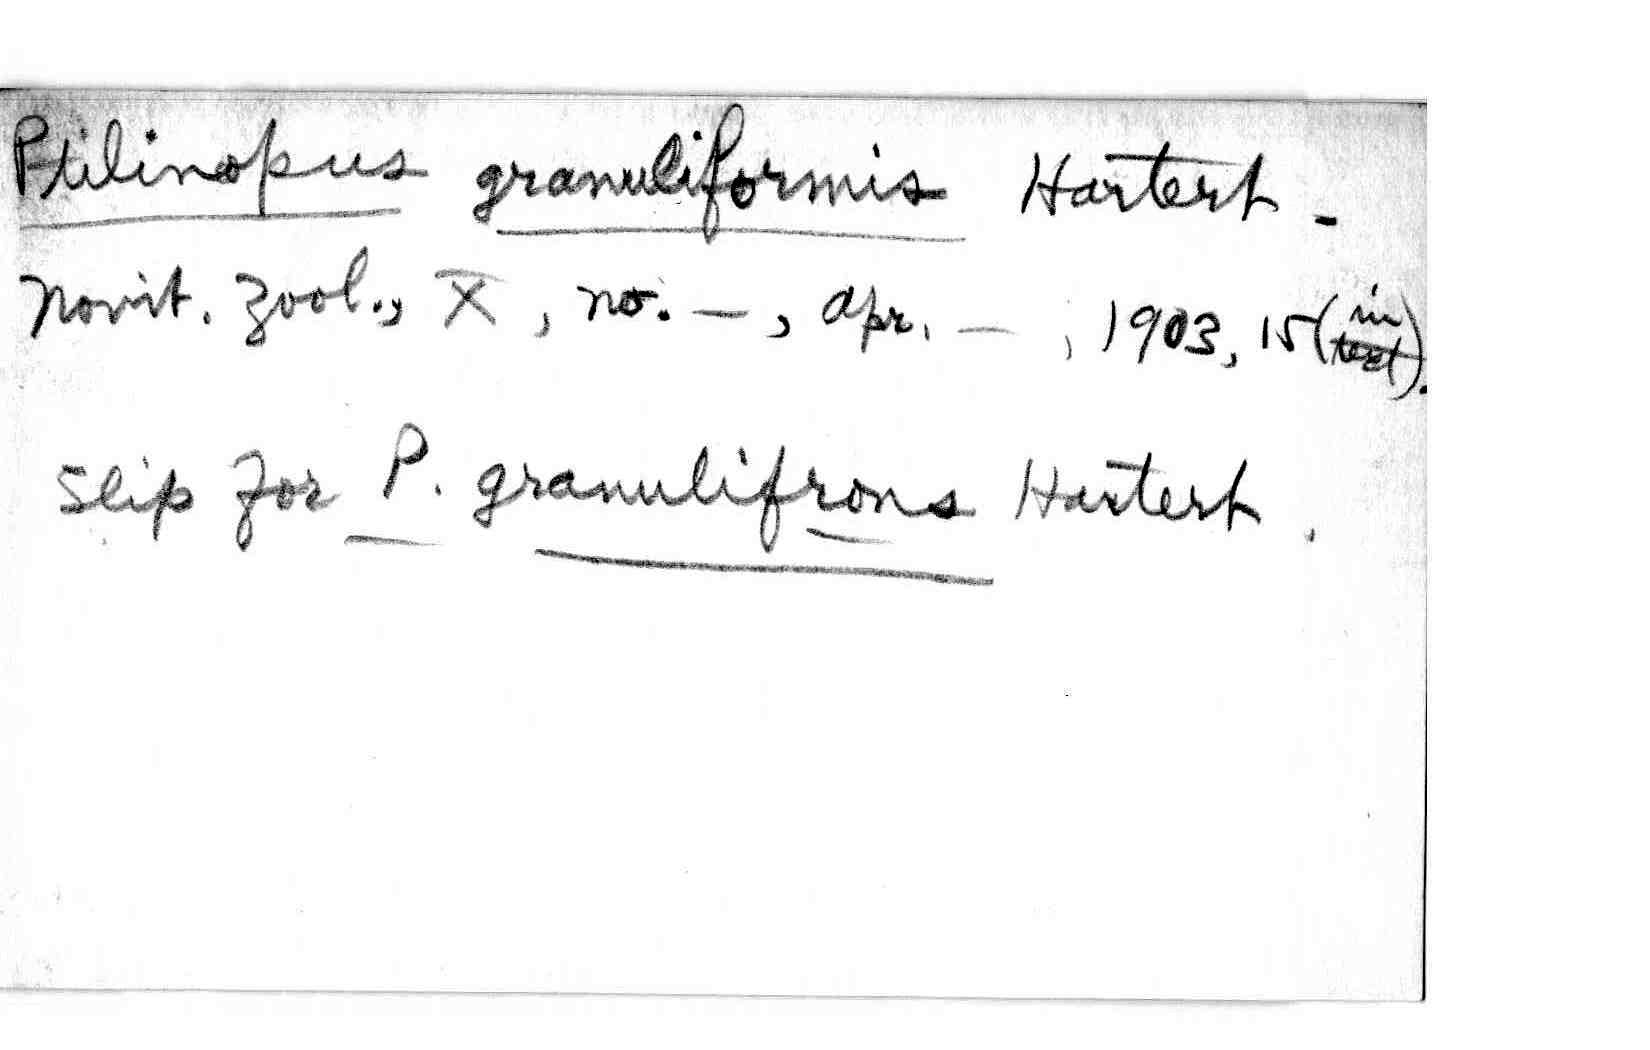 Ptilinopus granuliformis Hartert -
Novit. Zool., X, no. —, Apr. —, 1903, 15 (in text).
Slip for P. granulifrons Hartert.